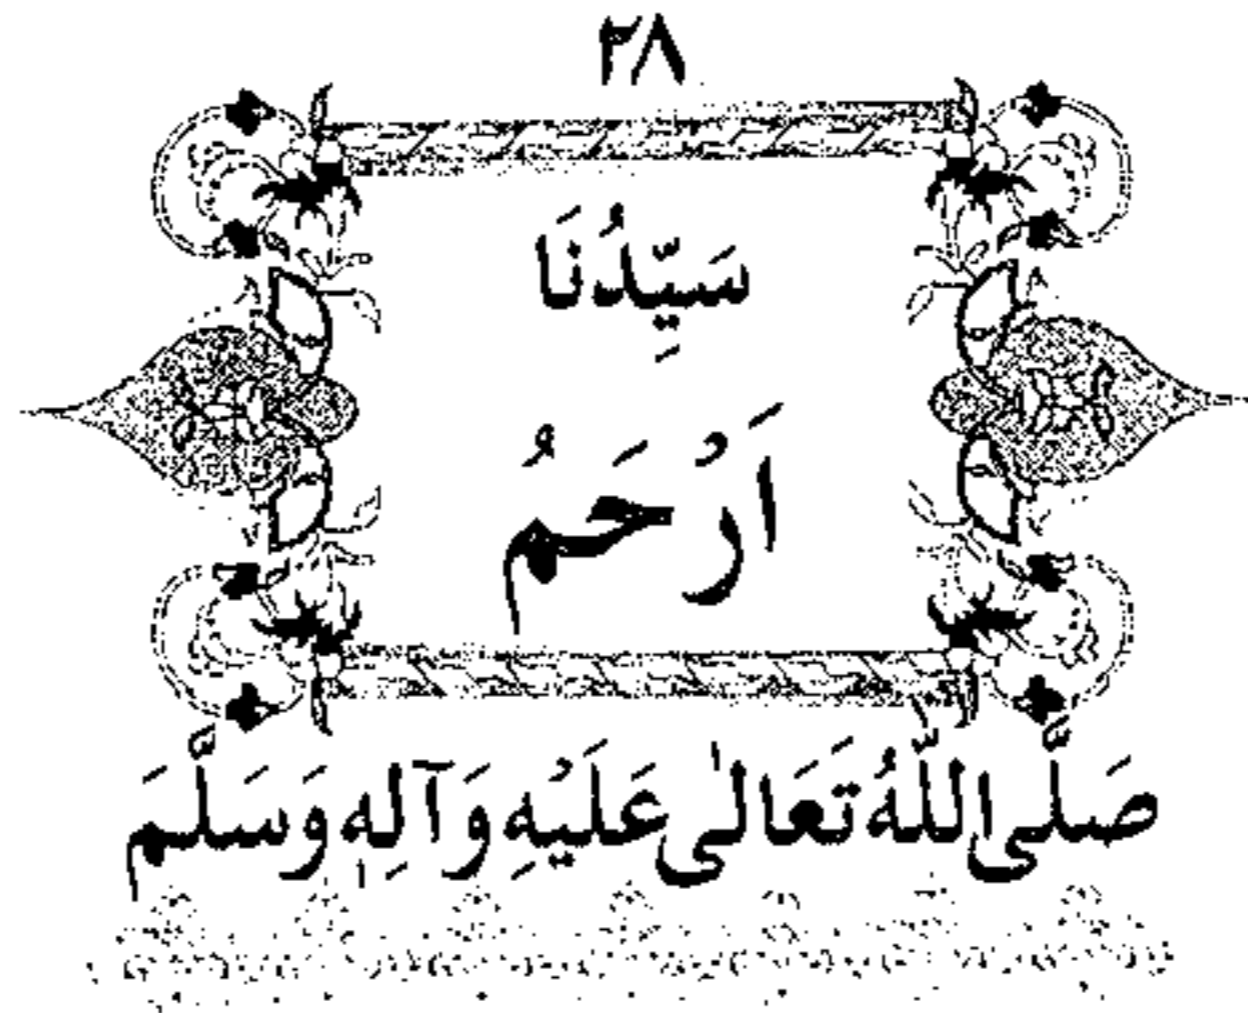 ٣٨
سَيِّدُنَا
اَرْحَمُ
صَلَّى اللّٰهُ تَعَالٰى عَلَيْهِ وَآلِهٖ وَسَلَّمَ